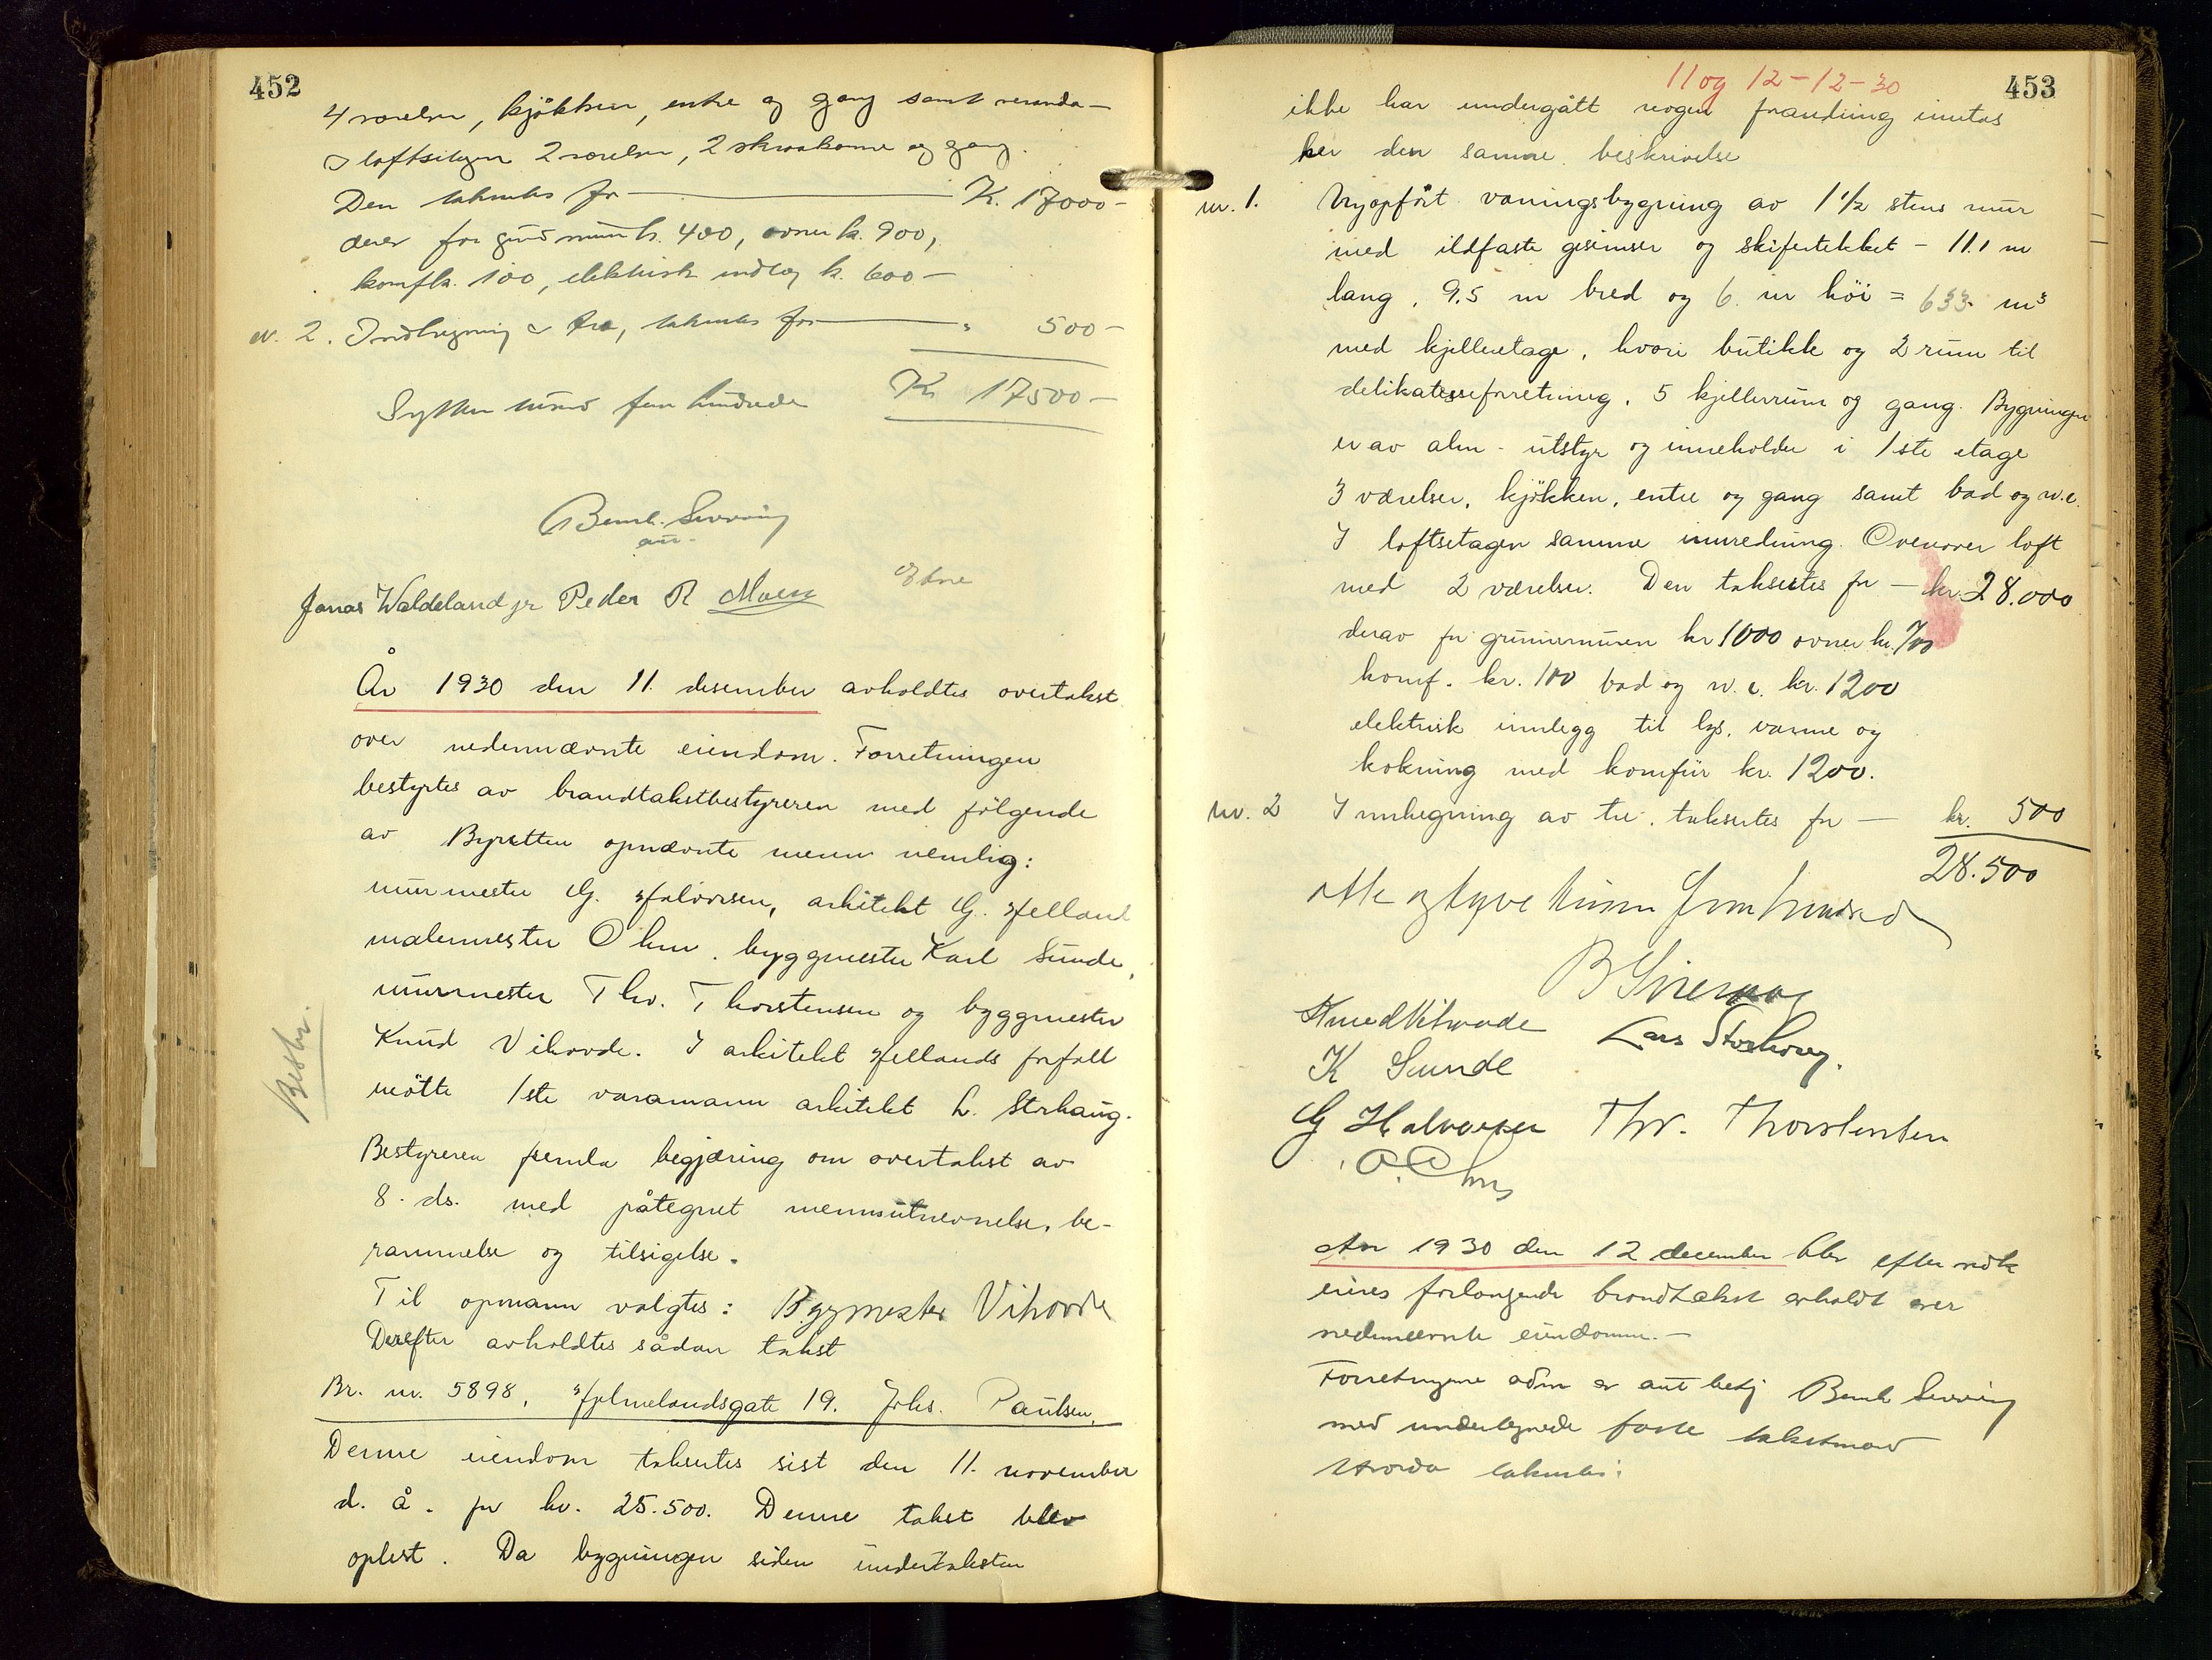 452
4 værelser, kjøkken, entre og gang samt veranda
I loftsetagen 2 værelser, 2 skraakamre og gang.
Den takseres for K. 17000-
derav for grundmur k. 400, ovner k. 900,
komf k. 100, elektrisk indlæg k. 600-
nr. 2. Indhegning av træ, takseres for " 500-
Sytten tusind fem hundrede Kr 17500-
Jonas Waldeland jr Peder R Moen
År 1930 den 11. desember avholdtes overtakst
over nedennævnte eiendom. Forretningen
bestyrtes av brandtakstbestyreren med følgende
av Byretten opnævnte menn nemlig:
murmester G. Halvorsen, arkitekt G. Helland
malermester Ohm, byggmester Karl Sunde,
murmester Thv. Thorstensen og byggmester
Knud Vihovde. I arkitekt Hellands forfall
møtte 1ste varamann arkitekt L. Storhaug.
Beskr.
Bestyreren fremla begjæring om overtakst av
8. ds. med påtegnet mennsutnevnelse, be-
rammelse og tilsigelse.
Til opmann valgtes: Byggmester Vihovde
Derefter avholdtes sådan takst
Br. nr. 5898, Hjelmelandsgate 19. Johs. Paulsen,
Denne eiendom taksertes sist den 11. november
d. å. for kr. 25.500. Denne takst blev
oplest. Da bygningen siden undertaksten
11 og 12-12-30
453
ikke har undergått nogen forandring inntas
her den samme beskrivelse
nr. 1. Nyopført våningsbygning av 1 1/2 stens mur
med ildfaste gesimser og skifertekket - 11.1 m
lang, 9.5 m bred og 6. m høi = 633 m³
med kjelleretage, hvori butikk og 2 rum til
delikatesseforretning, 5 kjellerrum og gang. Bygningen
er av alm. utstyr og inneholder i 1ste etage
3 værelser, kjøkken, entre og gang samt bad og w.c.
I loftsetagen samme innredning. Ovenover loft
med 2 værelser. Den taksertes for - kr. 28.000
derav for grunnmuren kr 1000 ovner kr. 700
komf. kr. 100 bad og w.c. kr. 1200
elektrisk innlegg til lys, varme og
kokning med komfur kr. 1200.
nr. 2 Innhegning av tre, taksertes for - kr. 500
28.500
Otte og tyve tusen fem hundred
Knud Vihovde Lars Storhaug.
K Sunde
G Halvorsen Thv. Thorstensen
O. Ohm
Aar 1930 den 12 december blev efter vedk
eieres forlangende brandtakst avholdt over
nedennævnte eiendomme.-
Forretningene adm av
med undertegnede faste takstmænd